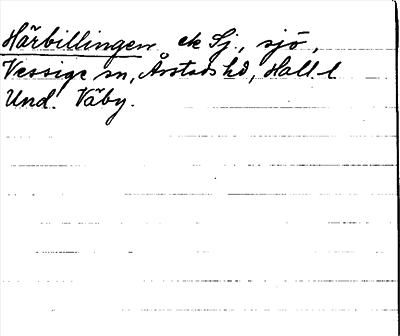 Härbillingen ek Sj., sjö,
Vessige sn, Årstads hd, Hall. l
Und. Väby.